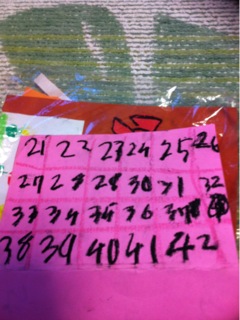 21 22 23 24 25 26
27 28 28 30 31 32
33 34 35 36 37
38 39 40 41 42